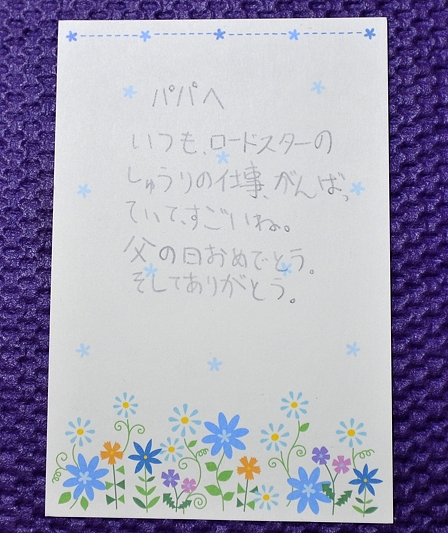 パパへ
いつも、ロードスターの
しゅうりの仕事、がんばっ
ていて、すごいね。
父の日おめでとう。
そしてありがとう。